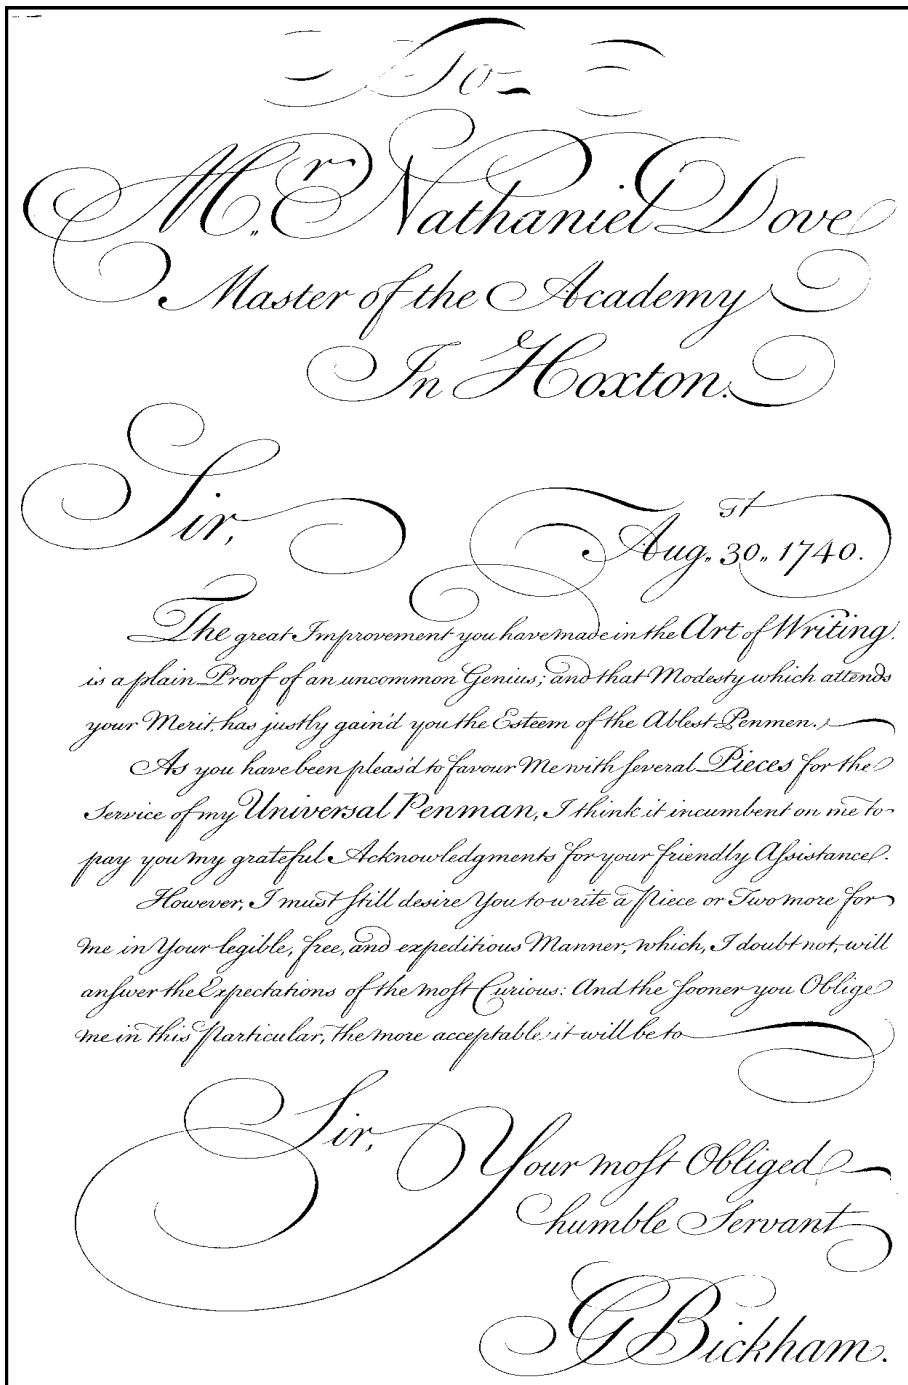 To
Mr. Nathaniel Dove
Master of the Academy
In Hoxton.
Sir,
Aug. 30,, 1740.
The great Improvement you have made in the Art of Writing.
is a plain Proof of an uncommon Genius; and that Modesty which attends
your Merit, has justly gain'd you the Esteem of the Ablest Penmen.
As you have been pleas'd to favour Me with ſeveral Pieces for the
Service of my Universal Penman, I think it incumbent on me to
pay you my grateful Acknowledgments for your friendly Aſsistance.
However, I must ſtill desire You to write a Piece or Two more for
me in Your legible, free, and expeditious Manner, which, I doubt not, will
anſwer the Expectations of the moſt Curious: And the ſooner you Oblige
me in this Particular, the more acceptable it will be to
Sir,
Your moſt Obliged
humble Servant
G Bickham.